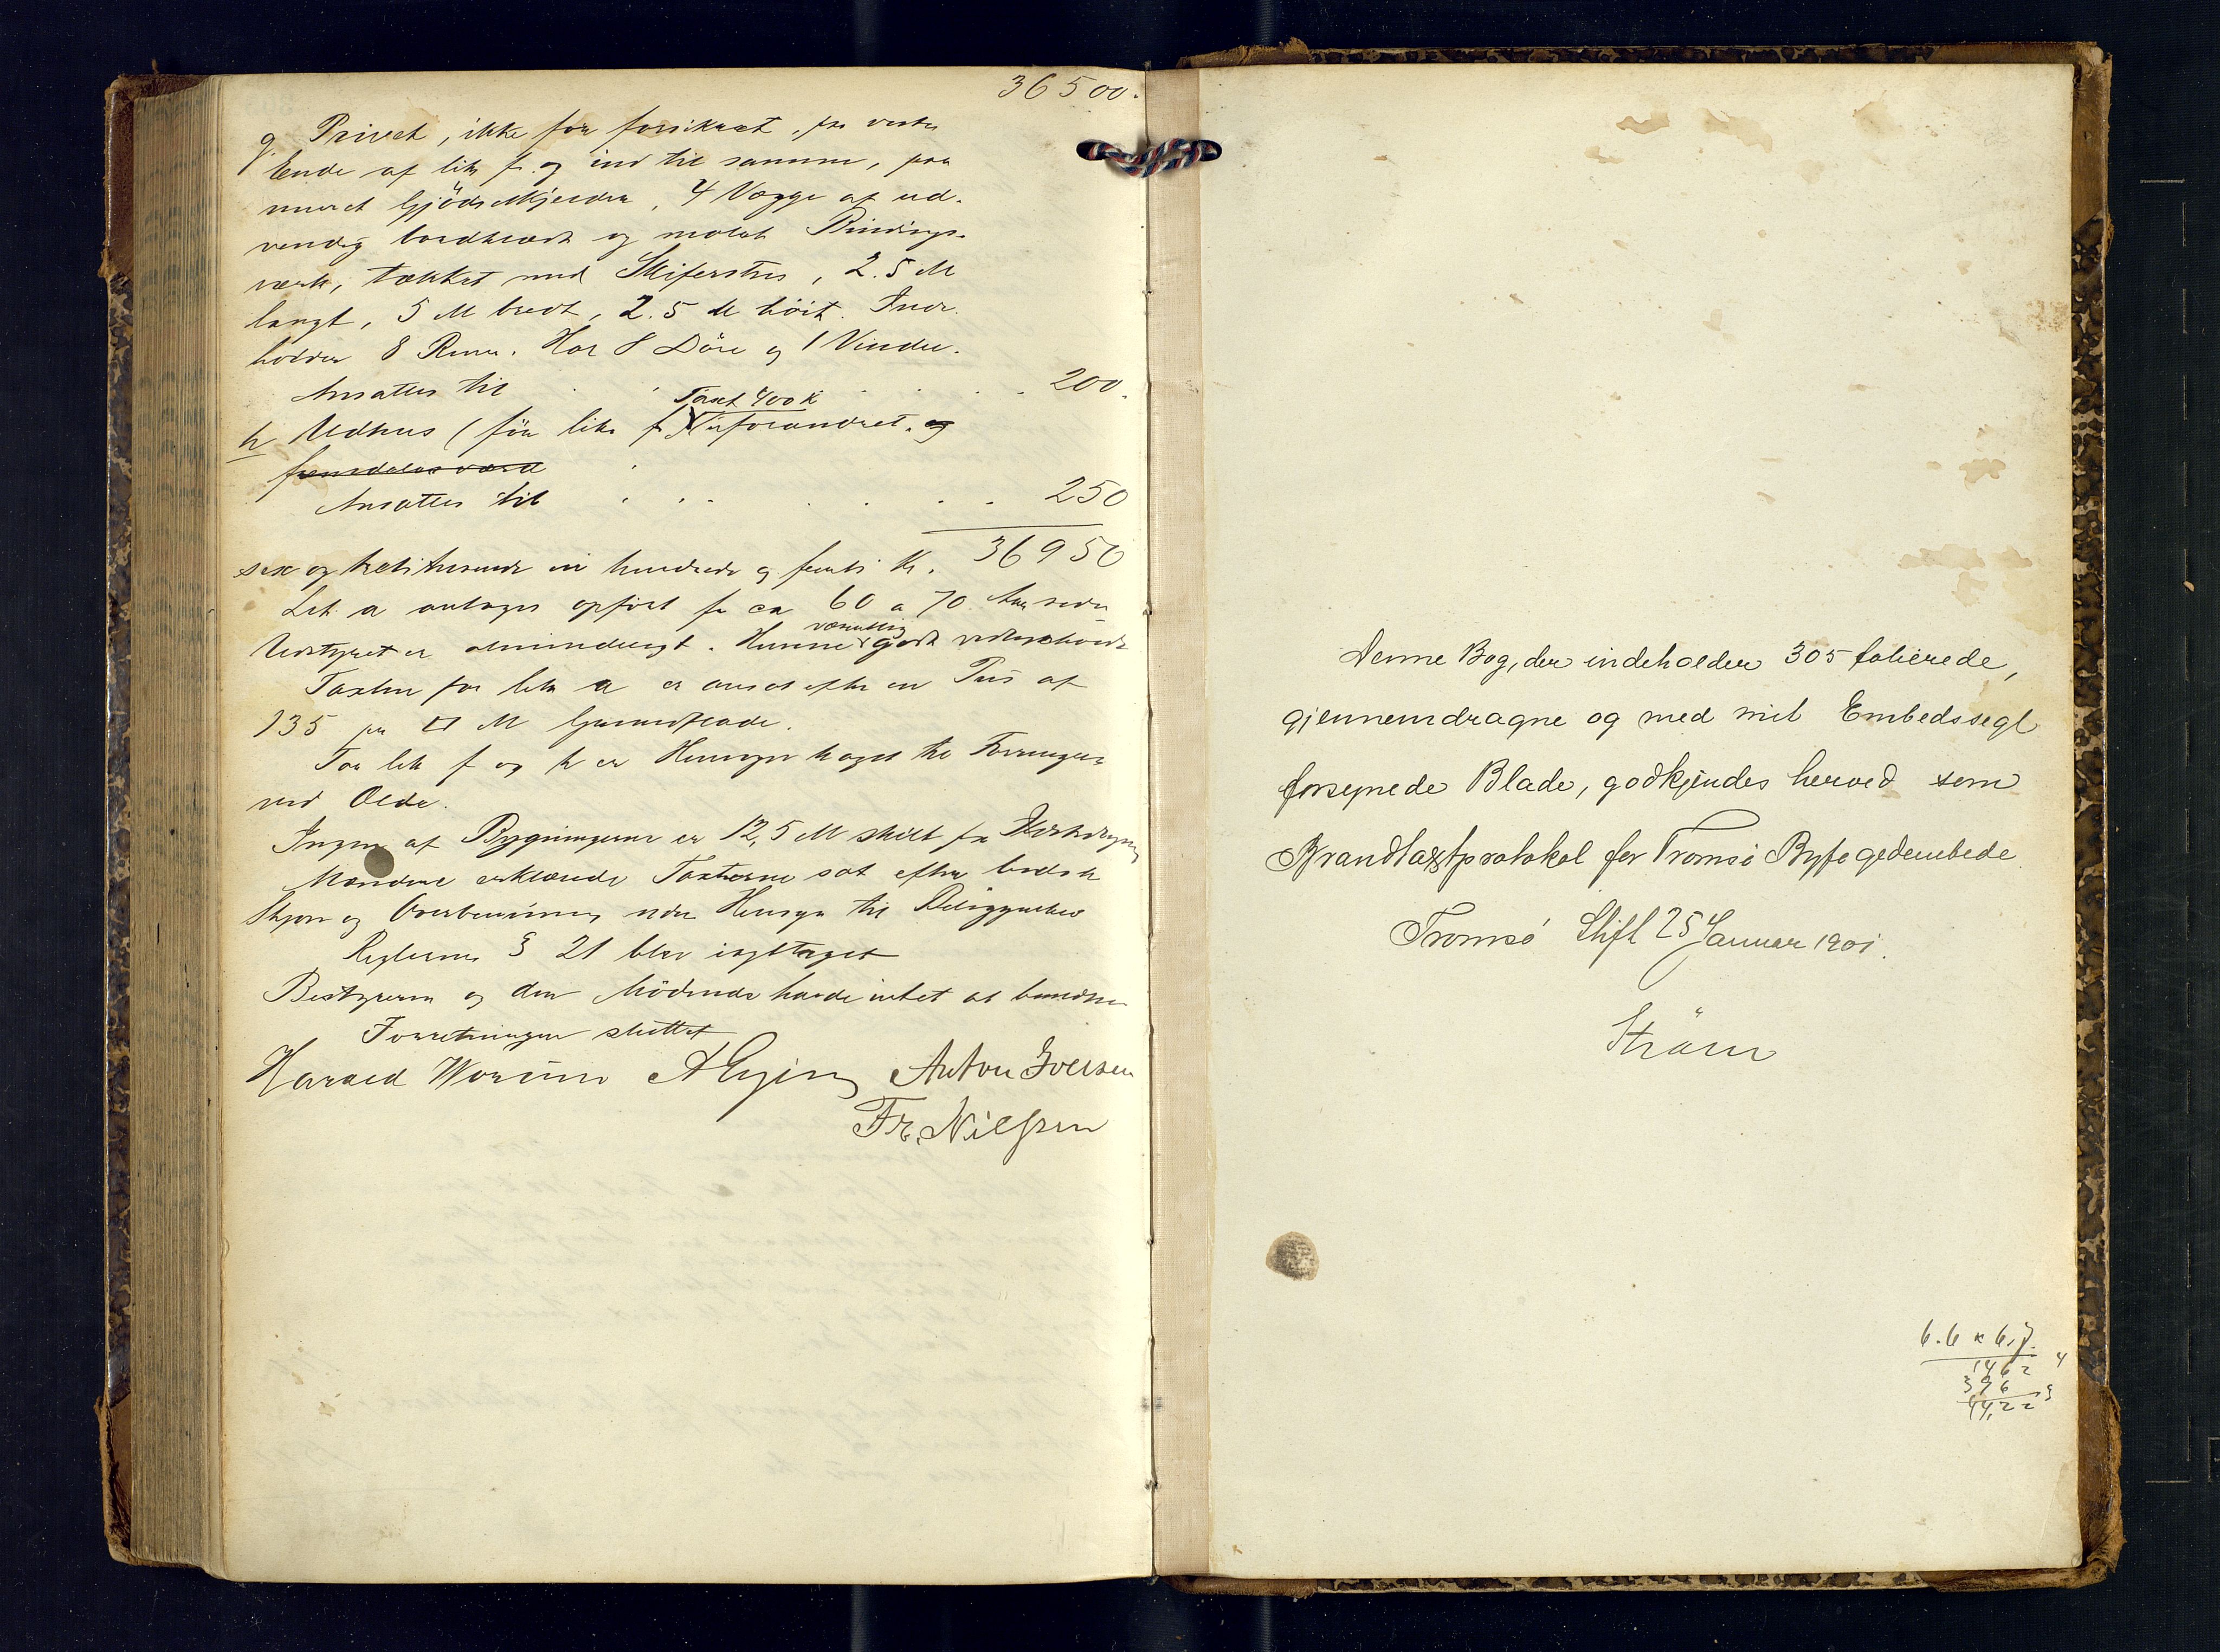 36500.
g. Privet, ikke før forsikret, fra vestre
Ende af litr f. og ind til samme, paa
muret Gjødselkjælder, 4 Vægge af ud-
vendig bordklædt og malet Bindings-
værk, tækket med Skifersten, 2.5 M
langt, 5 M bredt, 2.5 M höit. Inde-
holder 8 Rum. Har 8 Döre og 1 Vindu.
Ansættes til 200.
Taxt 400 K
h Udhus (för litr f) uforandret. og
Ansættes til 250
36950
sex og tretitusinde ni hundrede og femti Kr.
Lit. a antages opfört for ca 60 a 70 Aar siden
væsentlig
Udstyret er almindeligt. Husene godt vedligeholdt
Taxten for litr a er ansat efter en Pris af
135 pr □ M Grundflade.
For litr f og h er Hensyn taget til Forringelse
ved Ælde.
Ingen af Bygningerne er 12,5 M skilt fra
Mændene erklærede Taxterne sat efter bedste
Skjøn og Overbevisning uden Hensyn til Beliggenhed
Reglerne § 21 blev iagttaget
Bestyreren og den Mödende havde intet at bemærke
Forretningen sluttet
Harald Anton Iversen
Fr. Nilssen
Denne Bog, der indeholder 305 folierede,
gjennemdragne og med mit Embedssegl
forsynede Blade, godkjendes herved som
Brandtaxtprotokol for Tromsö Byfogedembede.
Tromsö Stift 25 Januar 1901.
Ström
6.6 x 6.7.
1462 4
396
44,22 3